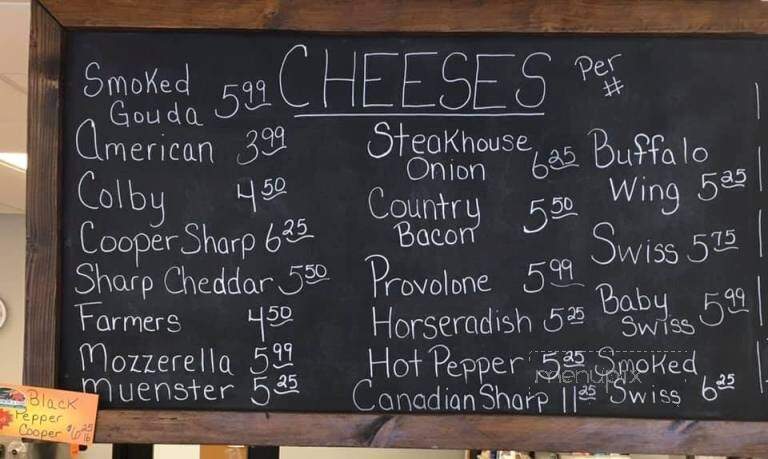 CHEESES Per #
Smoked Gouda 5.99
American 3.99
Colby 4.50
Cooper Sharp 6.25
Sharp Cheddar 5.50
Farmers 4.50
Mozzerella 5.99
Muenster 5.25
Steakhouse
Onion 6.25
Country
Bacon 5.50
Provolone 5.99
Horseradish 5.25
Hot Pepper 5.25
Canadian Sharp 11.25
Buffalo
Wing 5.25
Swiss 5.75
Baby
Swiss 5.99
Smoked
Swiss 6.25
Black
Pepper
Cooper $6.25 lb
menupix